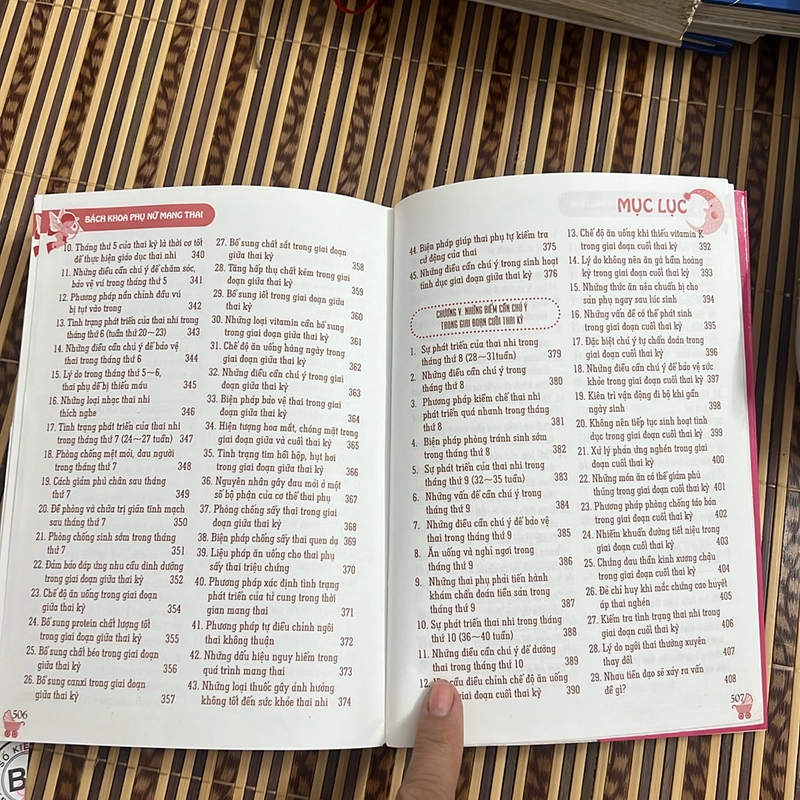 BÁCH KHOA PHỤ NỮ MANG THAI
10. Tháng thứ 5 của thai kỳ là thời cơ tốt
để thực hiện giáo dục thai nhi 340
11. Những điều cần chú ý để chăm sóc,
bảo vệ vú trong tháng thứ 5 341
12. Phương pháp nắn chỉnh đầu vú
bị tụt vào trong 342
13. Tình trạng phát triển của thai nhi trong
tháng thứ 6 (tuần thứ 20~23) 343
14. Những điều cần chú ý để bảo vệ
thai trong tháng thứ 6 344
15. Lý do trong tháng thứ 5~6,
thai phụ dễ bị thiếu máu 345
16. Những loại nhạc thai nhi
thích nghe 346
17. Tình trạng phát triển của thai nhi
trong tháng thứ 7 (24~27 tuần) 347
18. Phòng chống mệt mỏi, đau người
trong tháng thứ 7 348
19. Cách giảm phù chân sau tháng
thứ 7 349
20. Đề phòng và chữa trị giãn tĩnh mạch
sau tháng thứ 7 350
21. Phòng chống sinh sớm trong tháng
thứ 7 351
22. Đảm bảo đáp ứng nhu cầu dinh dưỡng
trong giai đoạn giữa thai kỳ 352
23. Chế độ ăn uống trong giai đoạn
giữa thai kỳ 354
24. Bổ sung protein chất lượng tốt
trong giai đoạn giữa thai kỳ 355
25. Bổ sung chất béo trong giai đoạn
giữa thai kỳ 356
26. Bổ sung canxi trong giai đoạn
giữa thai kỳ 357
27. Bổ sung chất sắt trong giai đoạn
giữa thai kỳ 358
28. Tăng hấp thụ chất kẽm trong giai đoạn
giữa thai kỳ 359
29. Bổ sung iốt trong giai đoạn giữa
thai kỳ 360
30. Những loại vitamin cần bổ sung
trong giai đoạn giữa thai kỳ 361
31. Chế độ ăn uống hàng ngày trong
giai đoạn giữa thai kỳ 362
32. Những điều cần chú ý trong giai
đoạn giữa thai kỳ 363
33. Biện pháp bảo vệ thai trong giai
đoạn giữa thai kỳ 364
34. Hiện tượng hoa mắt, chóng mặt trong
giai đoạn giữa và cuối thai kỳ 365
35. Tình trạng tim hồi hộp, hụt hơi
trong giai đoạn giữa thai kỳ 366
36. Nguyên nhân gây đau mỏi ở một
số bộ phận của cơ thể thai phụ 367
37. Phòng chống sẩy thai trong giai
đoạn giữa thai kỳ 368
38. Biện pháp chống sẩy thai quen dạ 369
39. Liệu pháp ăn uống cho thai phụ
sẩy thai triệu chứng 370
40. Phương pháp xác định tình trạng
phát triển của tử cung trong thời
gian mang thai 371
41. Phương pháp tự điều chỉnh ngôi
thai không thuận 372
42. Những dấu hiệu nguy hiểm trong
quá trình mang thai 373
43. Những loại thuốc gây ảnh hưởng
không tốt đến sức khỏe thai nhi 374
506
MỤC LỤC
44. Biện pháp giúp thai phụ tự kiểm tra
cử động của thai 375
45. Những điều cần chú ý trong sinh hoạt
tình dục giai đoạn giữa thai kỳ 376
CHƯƠNG V. NHỮNG ĐIỂM CẦN CHÚ Ý
TRONG GIAI ĐOẠN CUỐI THAI KỲ
1. Sự phát triển của thai nhi trong
tháng thứ 8 (28~31tuần) 379
2. Những điều cần chú ý trong
tháng thứ 8 380
3. Phương pháp kiềm chế thai nhi
phát triển quá nhanh trong tháng
thứ 8 381
4. Biện pháp phòng tránh sinh sớm
trong tháng thứ 8 382
5. Sự phát triển của thai nhi trong
tháng thứ 9 (32~35 tuần) 383
6. Những vấn đề cần chú ý trong
tháng thứ 9 384
7. Những điều cần chú ý để bảo vệ
thai trong tháng thứ 9 385
8. Ăn uống và nghỉ ngơi trong
tháng thứ 9 386
9. Những thai phụ phải tiến hành
khám chẩn đoán tiền sản trong
tháng thứ 9 387
10. Sự phát triển thai nhi trong tháng
thứ 10 (36~40 tuần) 388
11. Những điều cần chú ý để dưỡng
thai trong tháng thứ 10 389
12. cầu điều chỉnh chế độ ăn uống
giai đoạn cuối thai kỳ 390
13. Chế độ ăn uống khi thiếu vitamin K
trong giai đoạn cuối thai kỳ 392
14. Lý do không nên ăn gà hầm hoàng
kỳ trong giai đoạn cuối thai kỳ 393
15. Những thức ăn nên chuẩn bị cho
sản phụ ngay sau lúc sinh 394
16. Những vấn đề có thể phát sinh
trong giai đoạn cuối thai kỳ 395
17. Đặc biệt chú ý tự chẩn đoán trong
giai đoạn cuối thai kỳ 396
18. Những điều cần chú ý để bảo vệ sức
khỏe trong giai đoạn cuối thai kỳ 397
19. Kiên trì vận động đi bộ khi gần
ngày sinh 398
20. Không nên tiếp tục sinh hoạt tình
dục trong giai đoạn cuối thai kỳ 399
21. Xử lý phản ứng nghén trong giai
đoạn cuối thai kỳ 400
22. Những món ăn có thể giảm phù
thũng trong giai đoạn cuối thai kỳ 401
23. Phương pháp phòng chống táo bón
trong giai đoạn cuối thai kỳ 402
24. Nhiễm khuẩn đường tiết niệu trong
giai đoạn cuối thai kỳ 403
25. Chứng đau thần kinh xương chậu
trong giai đoạn cuối thai kỳ 404
26. Đẻ chỉ huy khi mắc chứng cao huyết
áp thai nghén 405
27. Kiểm tra tình trạng thai nhi trong
giai đoạn cuối thai kỳ 406
28. Lý do ngôi thai thường xuyên
thay đổi 407
29. Nhau tiền đạo sẽ xảy ra vấn
đề gì? 408
507